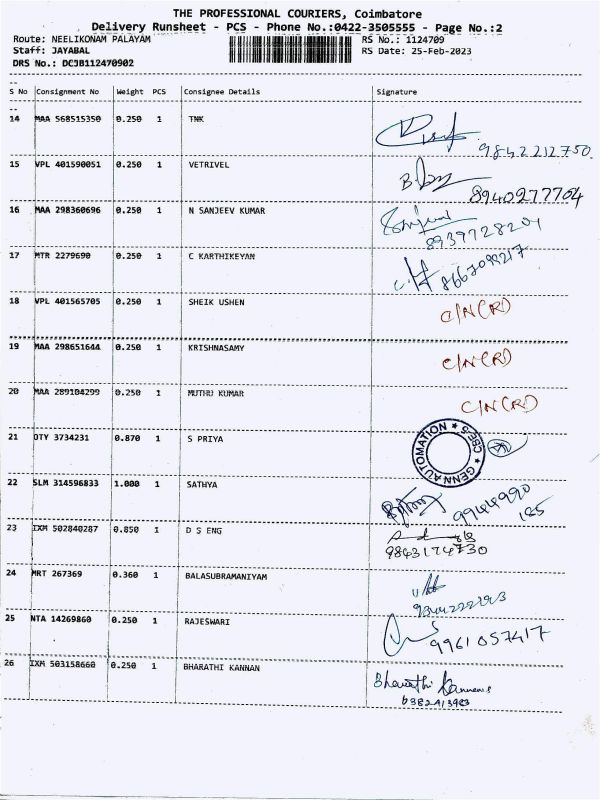 THE PROFESSIONAL COURIERS, Coimbatore
Delivery Runsheet - PCS - Phone No.:0422-3505555 - Page No.:2
Route: NEELIKONAM PALAYAM RS No.: 1124709
Staff: JAYABAL RS Date: 25-Feb-2023
DRS No.: DCJB112470902
S No Consignment No Weight PCS Consignee Details Signature
14 MAA 568515350 0.250 1 TNK
9842212750
15 VPL 401590051 0.250 1 VETRIVEL
8940277704
16 MAA 298360696 0.250 1 N SANJEEV KUMAR
8939728201
17 MTR 2279690 0.250 1 C KARTHIKEYAN
18 VPL 401565705 0.250 1 SHEIK USHEN C/N(RD)
19 MAA 298651644 0.250 1 KRISHNASAMY C/N(RD)
20 MAA 289104299 0.250 1 MUTHU KUMAR C/N(RD)
21 OTY 3734231 0.870 1 S PRIYA GENN AUTOMATION ★ CBES ★
22 SLM 314596833 1.000 1 SATHYA
9944990
185
23 IXM 502840287 0.850 1 D S ENG
9843174730
24 MRT 267369 0.360 1 BALASUBRAMANIYAM
25 NTA 14269860 0.250 1 RAJESWARI
9961057417
26 IXM 503158660 0.250 1 BHARATHI KANNAN
Bharathi